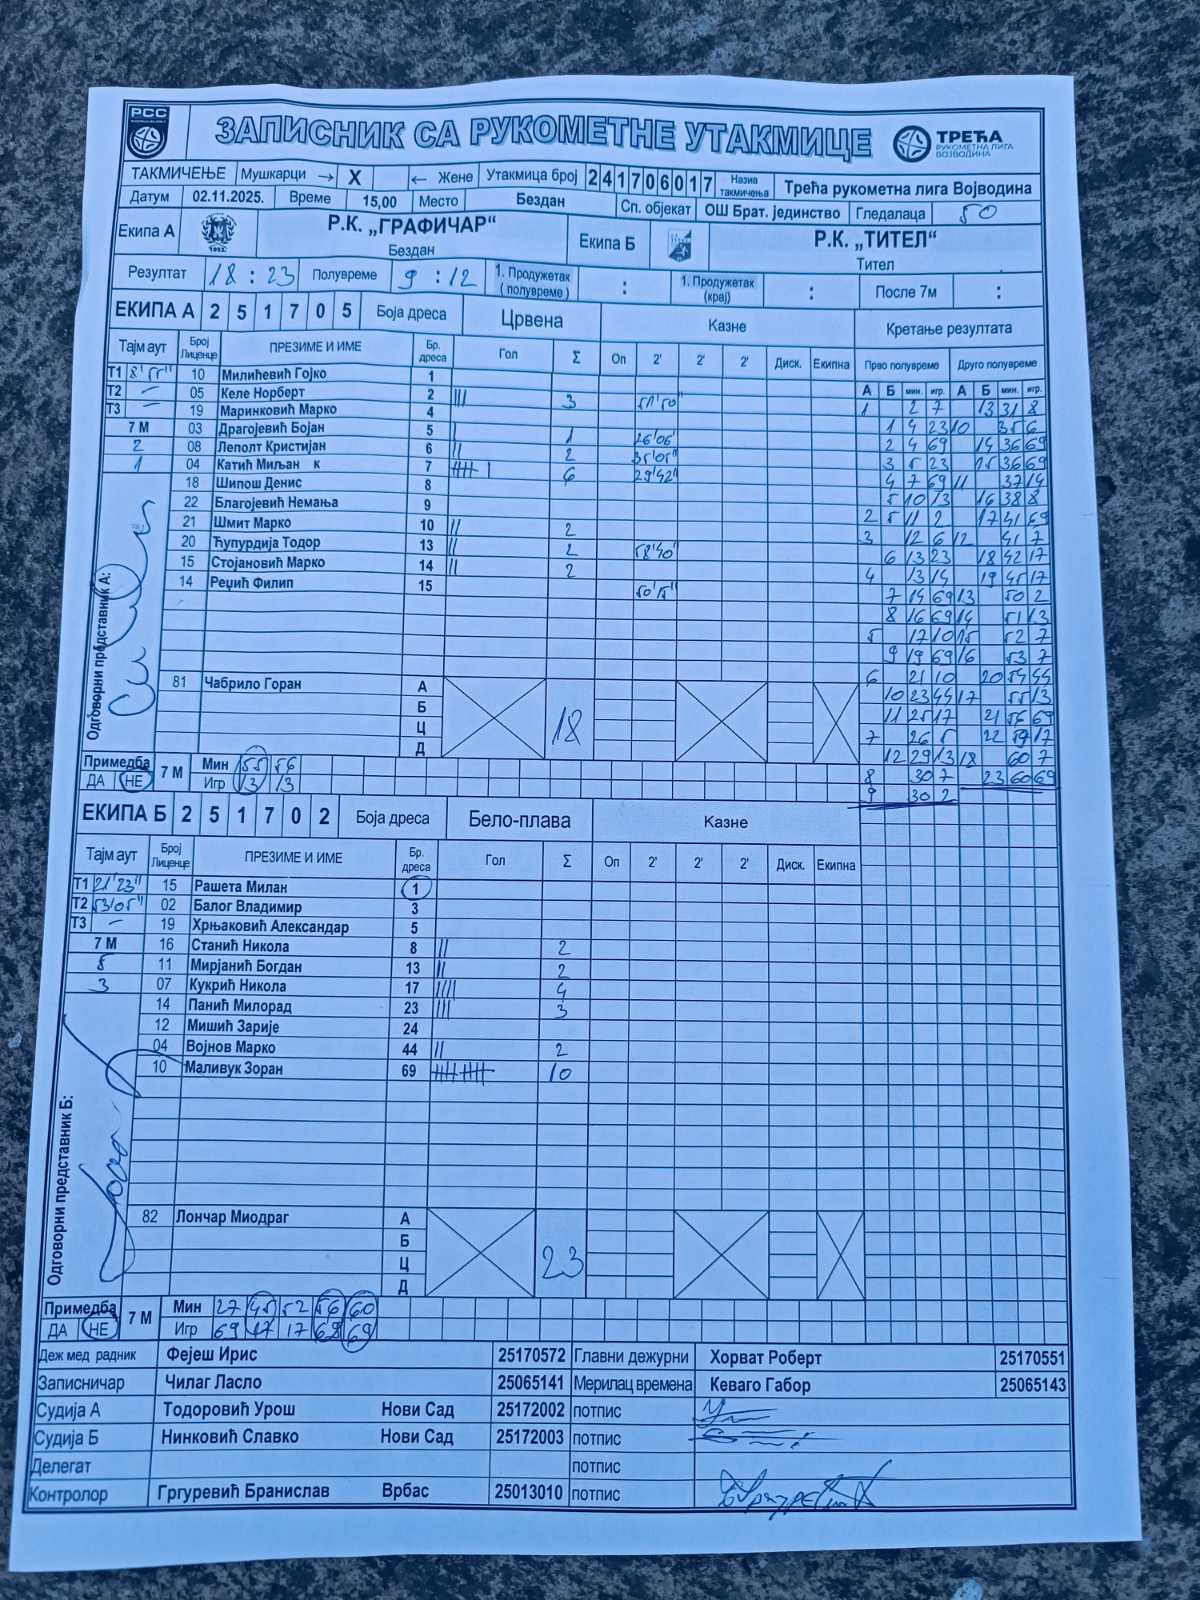 РСС
ЗАПИСНИК СА РУКОМЕТНЕ УТАКМИЦЕ
ТРЕЋА
РУКОМЕТНА ЛИГА
ВОЈВОДИНА
ТАКМИЧЕЊЕ Мушкарци → X ← Жене Утакмица број 241706017 Назив такмичења Трећа рукометна лига Војводина
Датум 02.11.2025. Време 15,00 Место Бездан Сп. објекат ОШ Брат. јединство Гледалаца 50
Екипа А Р.К. „ГРАФИЧАР“ Бездан Екипа Б Р.К. „ТИТЕЛ“ Тител
Резултат 18 : 23 Полувреме 9 : 12 1. Продужетак (полувреме) : 1. Продужетак (крај) : После 7м :
ЕКИПА А 2 5 1 7 0 5 Боја дреса Црвена Казне Кретање резултата
Тајм аут Број Лиценце ПРЕЗИМЕ И ИМЕ Бр. дреса Гол Σ Оп 2' 2' 2' Диск. Екипна Прво полувреме Друго полувреме
А Б мин. игр. А Б мин. игр.
Т1 8'55" 10 Милићевић Гојко 1
Т2 – 05 Келе Норберт 2 ||| 3 51'50"
Т3 – 19 Маринковић Марко 4
7 М 03 Драгојевић Бојан 5 | 1 26'06"
2 08 Леполт Кристијан 6 || 2 35'05"
1 04 Катић Миљан к 7 |||| | 6 29'42"
18 Шипош Денис 8
22 Благојевић Немања 9
21 Шмит Марко 10 || 2
20 Ћупурдија Тодор 13 || 2 58'40"
15 Стојановић Марко 14 || 2
14 Реџић Филип 15 50'15"
1 2 7 13 31 8
1 4 23 10 35 6
2 4 69 14 36 69
3 5 23 15 36 69
4 7 69 11 37 14
5 10 13 16 38 8
2 11 2 17 41 69
3 12 6 12 41 7
6 13 23 18 42 17
4 13 14 19 45 17
7 14 69 13 50 2
8 16 69 14 51 13
5 17 10 15 52 7
9 19 69 16 53 7
6 21 10 20 54 44
10 23 44 17 55 13
11 25 17 21 56 69
7 26 5 22 59 17
12 29 13 18 60 7
8 30 7 23 60 69
9 30 2
Одговорни представник А:
81 Чабрило Горан А
Б
Ц
Д
18
Примедба ДА НЕ 7 М Мин 55 56
Игр 13 13
ЕКИПА Б 2 5 1 7 0 2 Боја дреса Бело-плава Казне
Тајм аут Број Лиценце ПРЕЗИМЕ И ИМЕ Бр. дреса Гол Σ Оп 2' 2' 2' Диск. Екипна
Т1 21'23" 15 Рашета Милан 1
Т2 53'05" 02 Балог Владимир 3
Т3 – 19 Хрњаковић Александар 5
7 М 16 Станић Никола 8 || 2
5 11 Мирјанић Богдан 13 || 2
3 07 Кукрић Никола 17 |||| 4
14 Панић Милорад 23 ||| 3
12 Мишић Зарије 24
04 Војнов Марко 44 || 2
10 Маливук Зоран 69 10
Одговорни представник Б:
82 Лончар Миодраг А
Б
Ц
Д
23
Примедба ДА НЕ 7 М Мин 27 45 52 56 60
Игр 69 17 17 69 69
Деж мед радник Фејеш Ирис 25170572 Главни дежурни Хорват Роберт 25170551
Записничар Чилаг Ласло 25065141 Мерилац времена Кеваго Габор 25065143
Судија А Тодоровић Урош Нови Сад 25172002 потпис
Судија Б Нинковић Славко Нови Сад 25172003 потпис
Делегат потпис
Контролор Гргуревић Бранислав Врбас 25013010 потпис